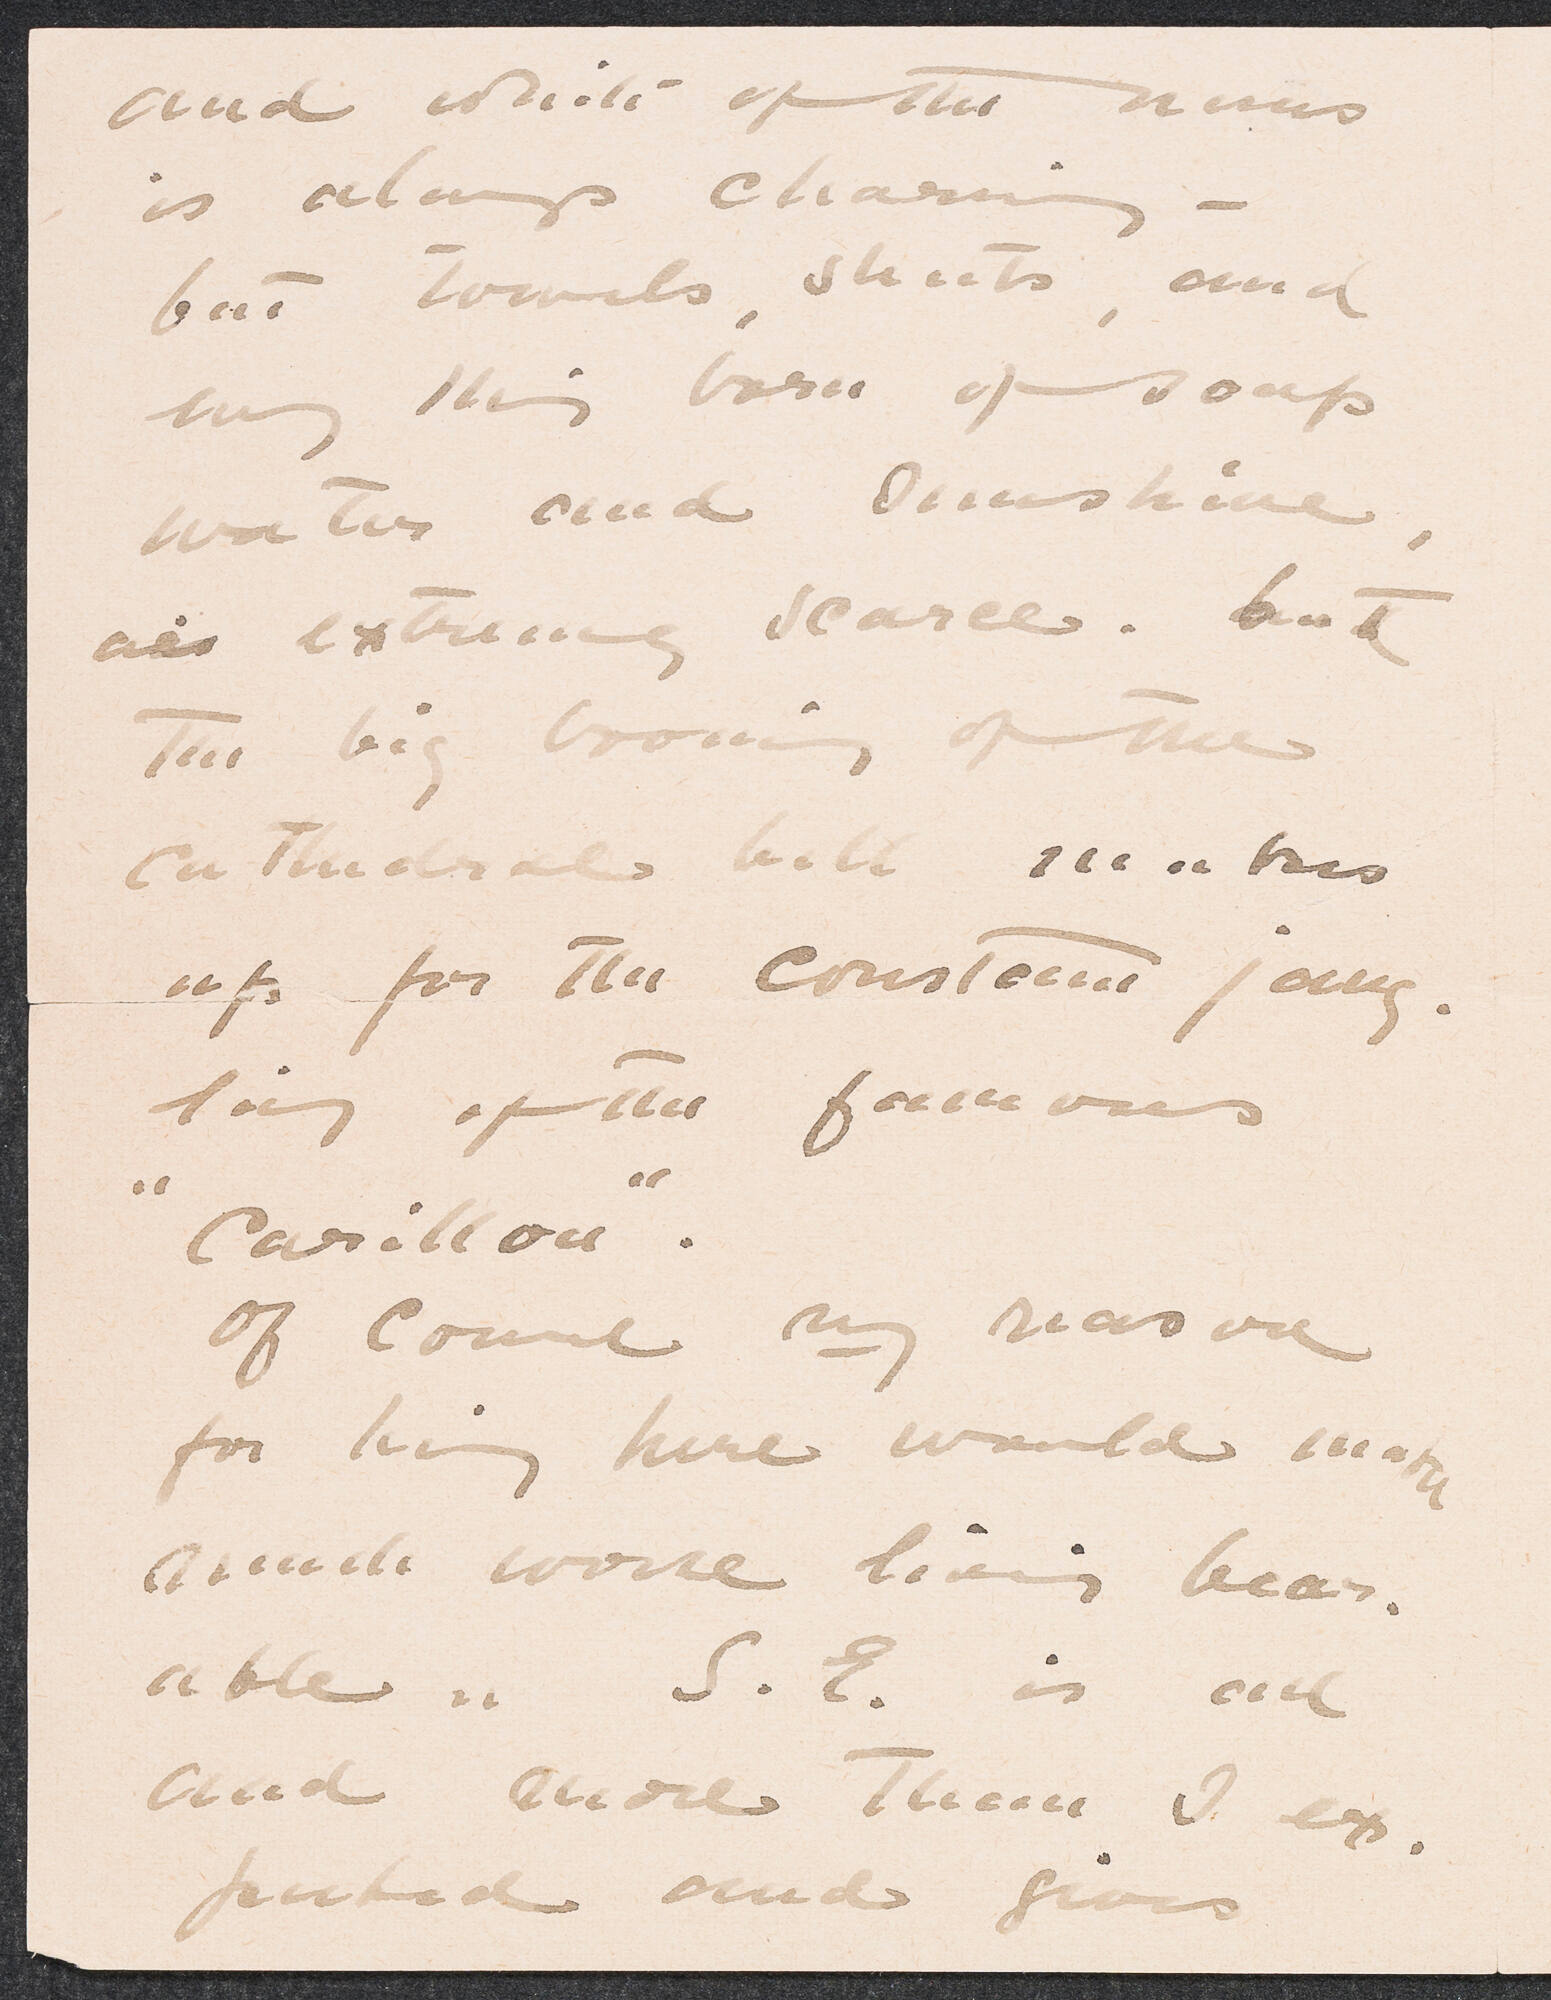 and white of the nuns
is always charming -
but towels, sheets, and
any thing born of soap
water and sunshine,
are extremely scarce. but
The big booming of the
cathedral bell makes
up for the constant jang-
ling of the famous
"Carillon".
Of course my reason
for being here would make
much worse living bear-
able .. S. E. is all
and more than I ex-
pected and gives